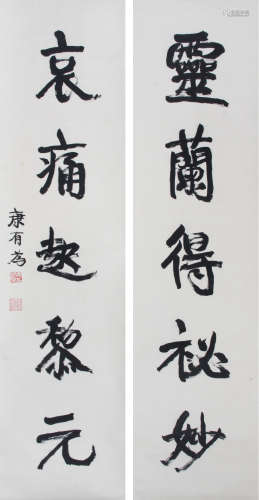 靈蘭得祕妙
哀痛起黎元
康有為